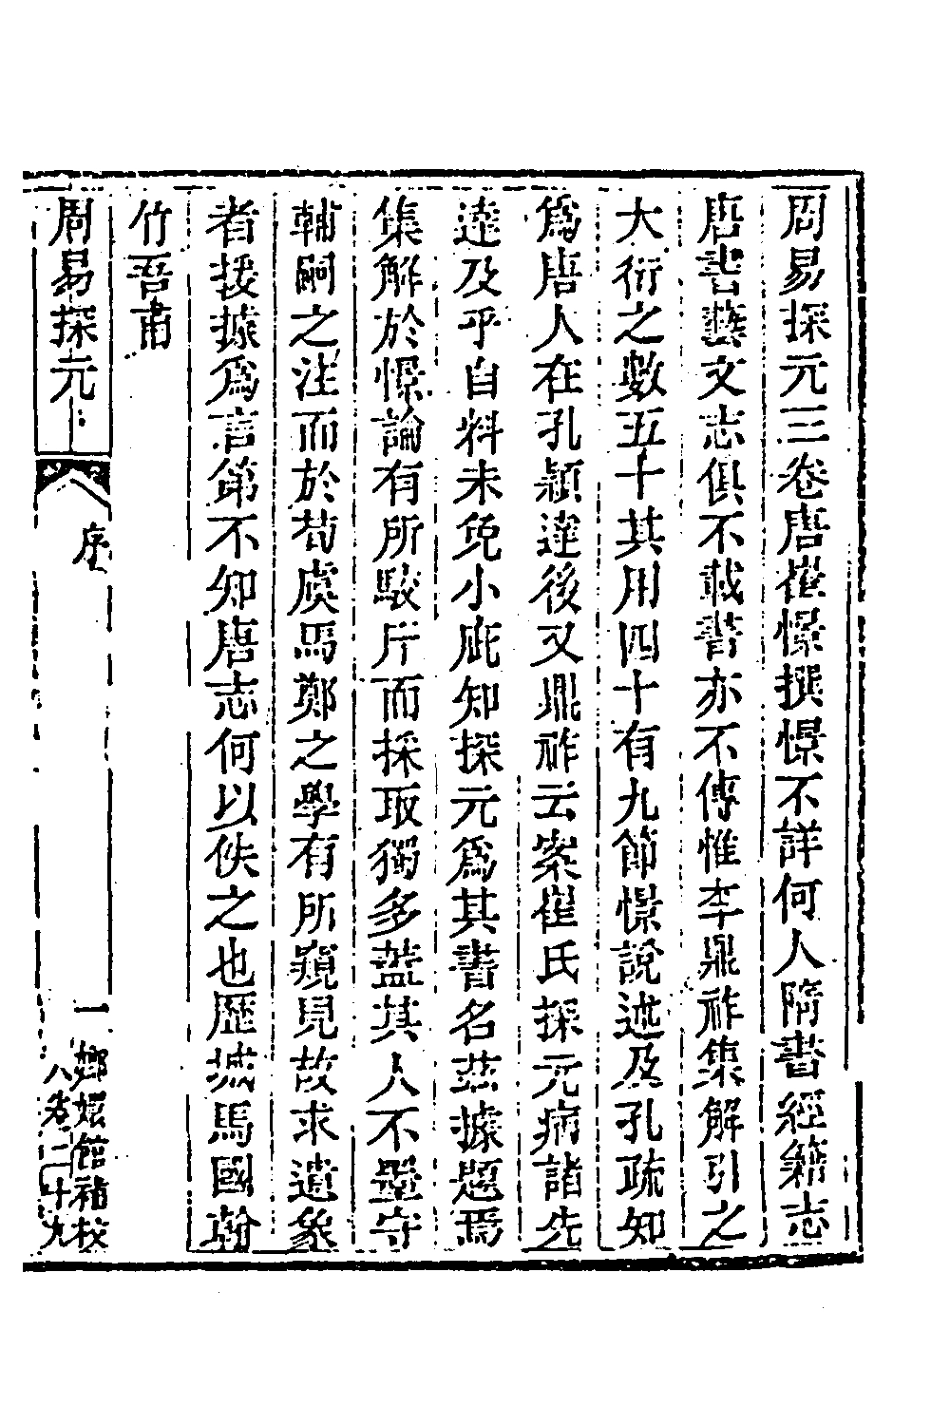 周易探元三卷唐崔憬撰憬不詳何人隋書經籍志
唐書藝文志俱不載書亦不傳惟李鼎祚集解引之
大衍之數五十其用四十有九節憬說述及孔疏知
為唐人在孔穎達後又鼎祚云案崔氏探元病諸先
達及乎自料未免小疵知探元為其書名茲據題焉
集解於憬論有所駁斥而採取獨多蓋其人不墨守
輔嗣之注而於荀虞馬鄭之學有所窺見故求遺象
者援據為言第不知唐志何以佚之也歷城馬國翰
竹吾甫
周易探元
序
一
嫏嬛館補校
八卷二十九